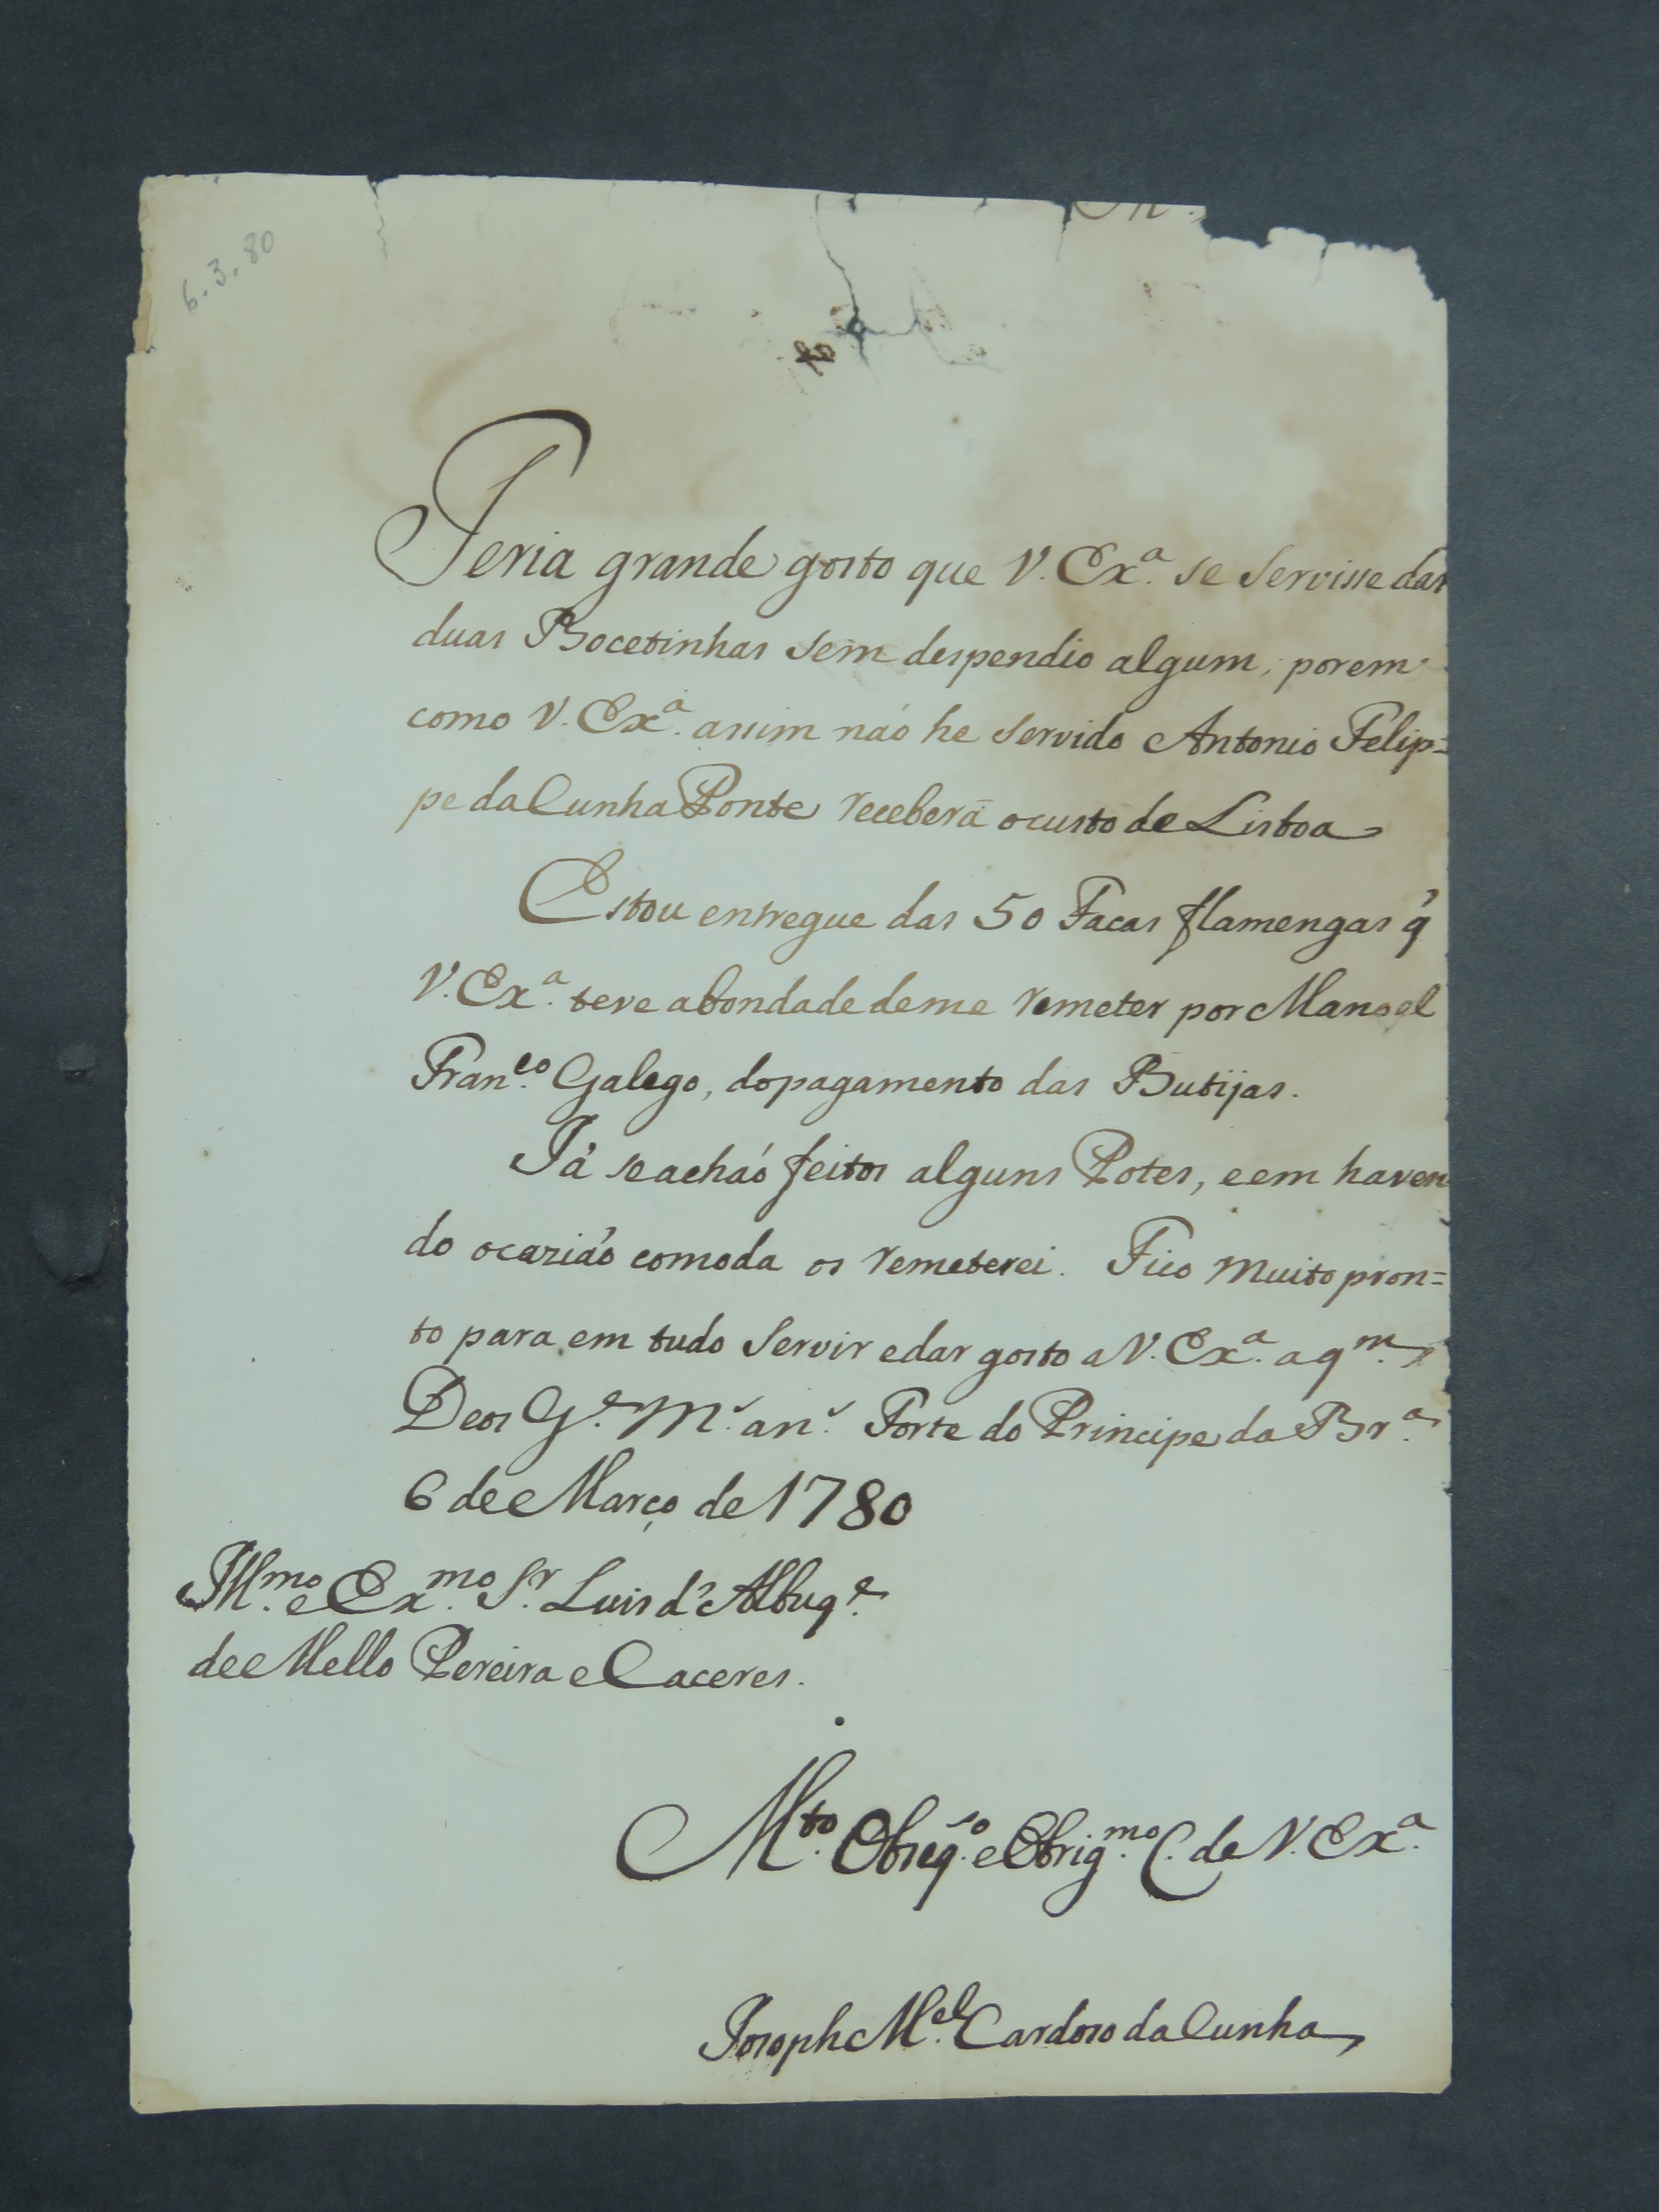 6.3.80
Teria grande gosto que V. Exª. se Servisse dar
duas Bocetinhas sem despendio algum, porem
como V. Exª. assim não he servido Antonio Felip=
pe da Cunha Ponte receberá o custo de Lisboa
Estou entregue das 50 Facas flamengas q̃
V. Exª. teve a bondade de me remeter por Manoel
Fran.co Galego, do pagamento das Butijas.
Já se achão feitos alguns Potes, e em haven
do ocazião comoda os remeterei. Fico muito pron=
to para em tudo Servir e dar gosto a V. Exª. a q.m
Deos G.e M.s an.s Forte do Principe da Br.ª
6 de Março de 1780
Ill.mo e Ex.mo S.r Luis d'Albuq.e
de Mello Pereira e Caceres.
M.to Obseq.so e Obrig.mo C. de V. Exª.
Joseph M.el Cardoso da Cunha